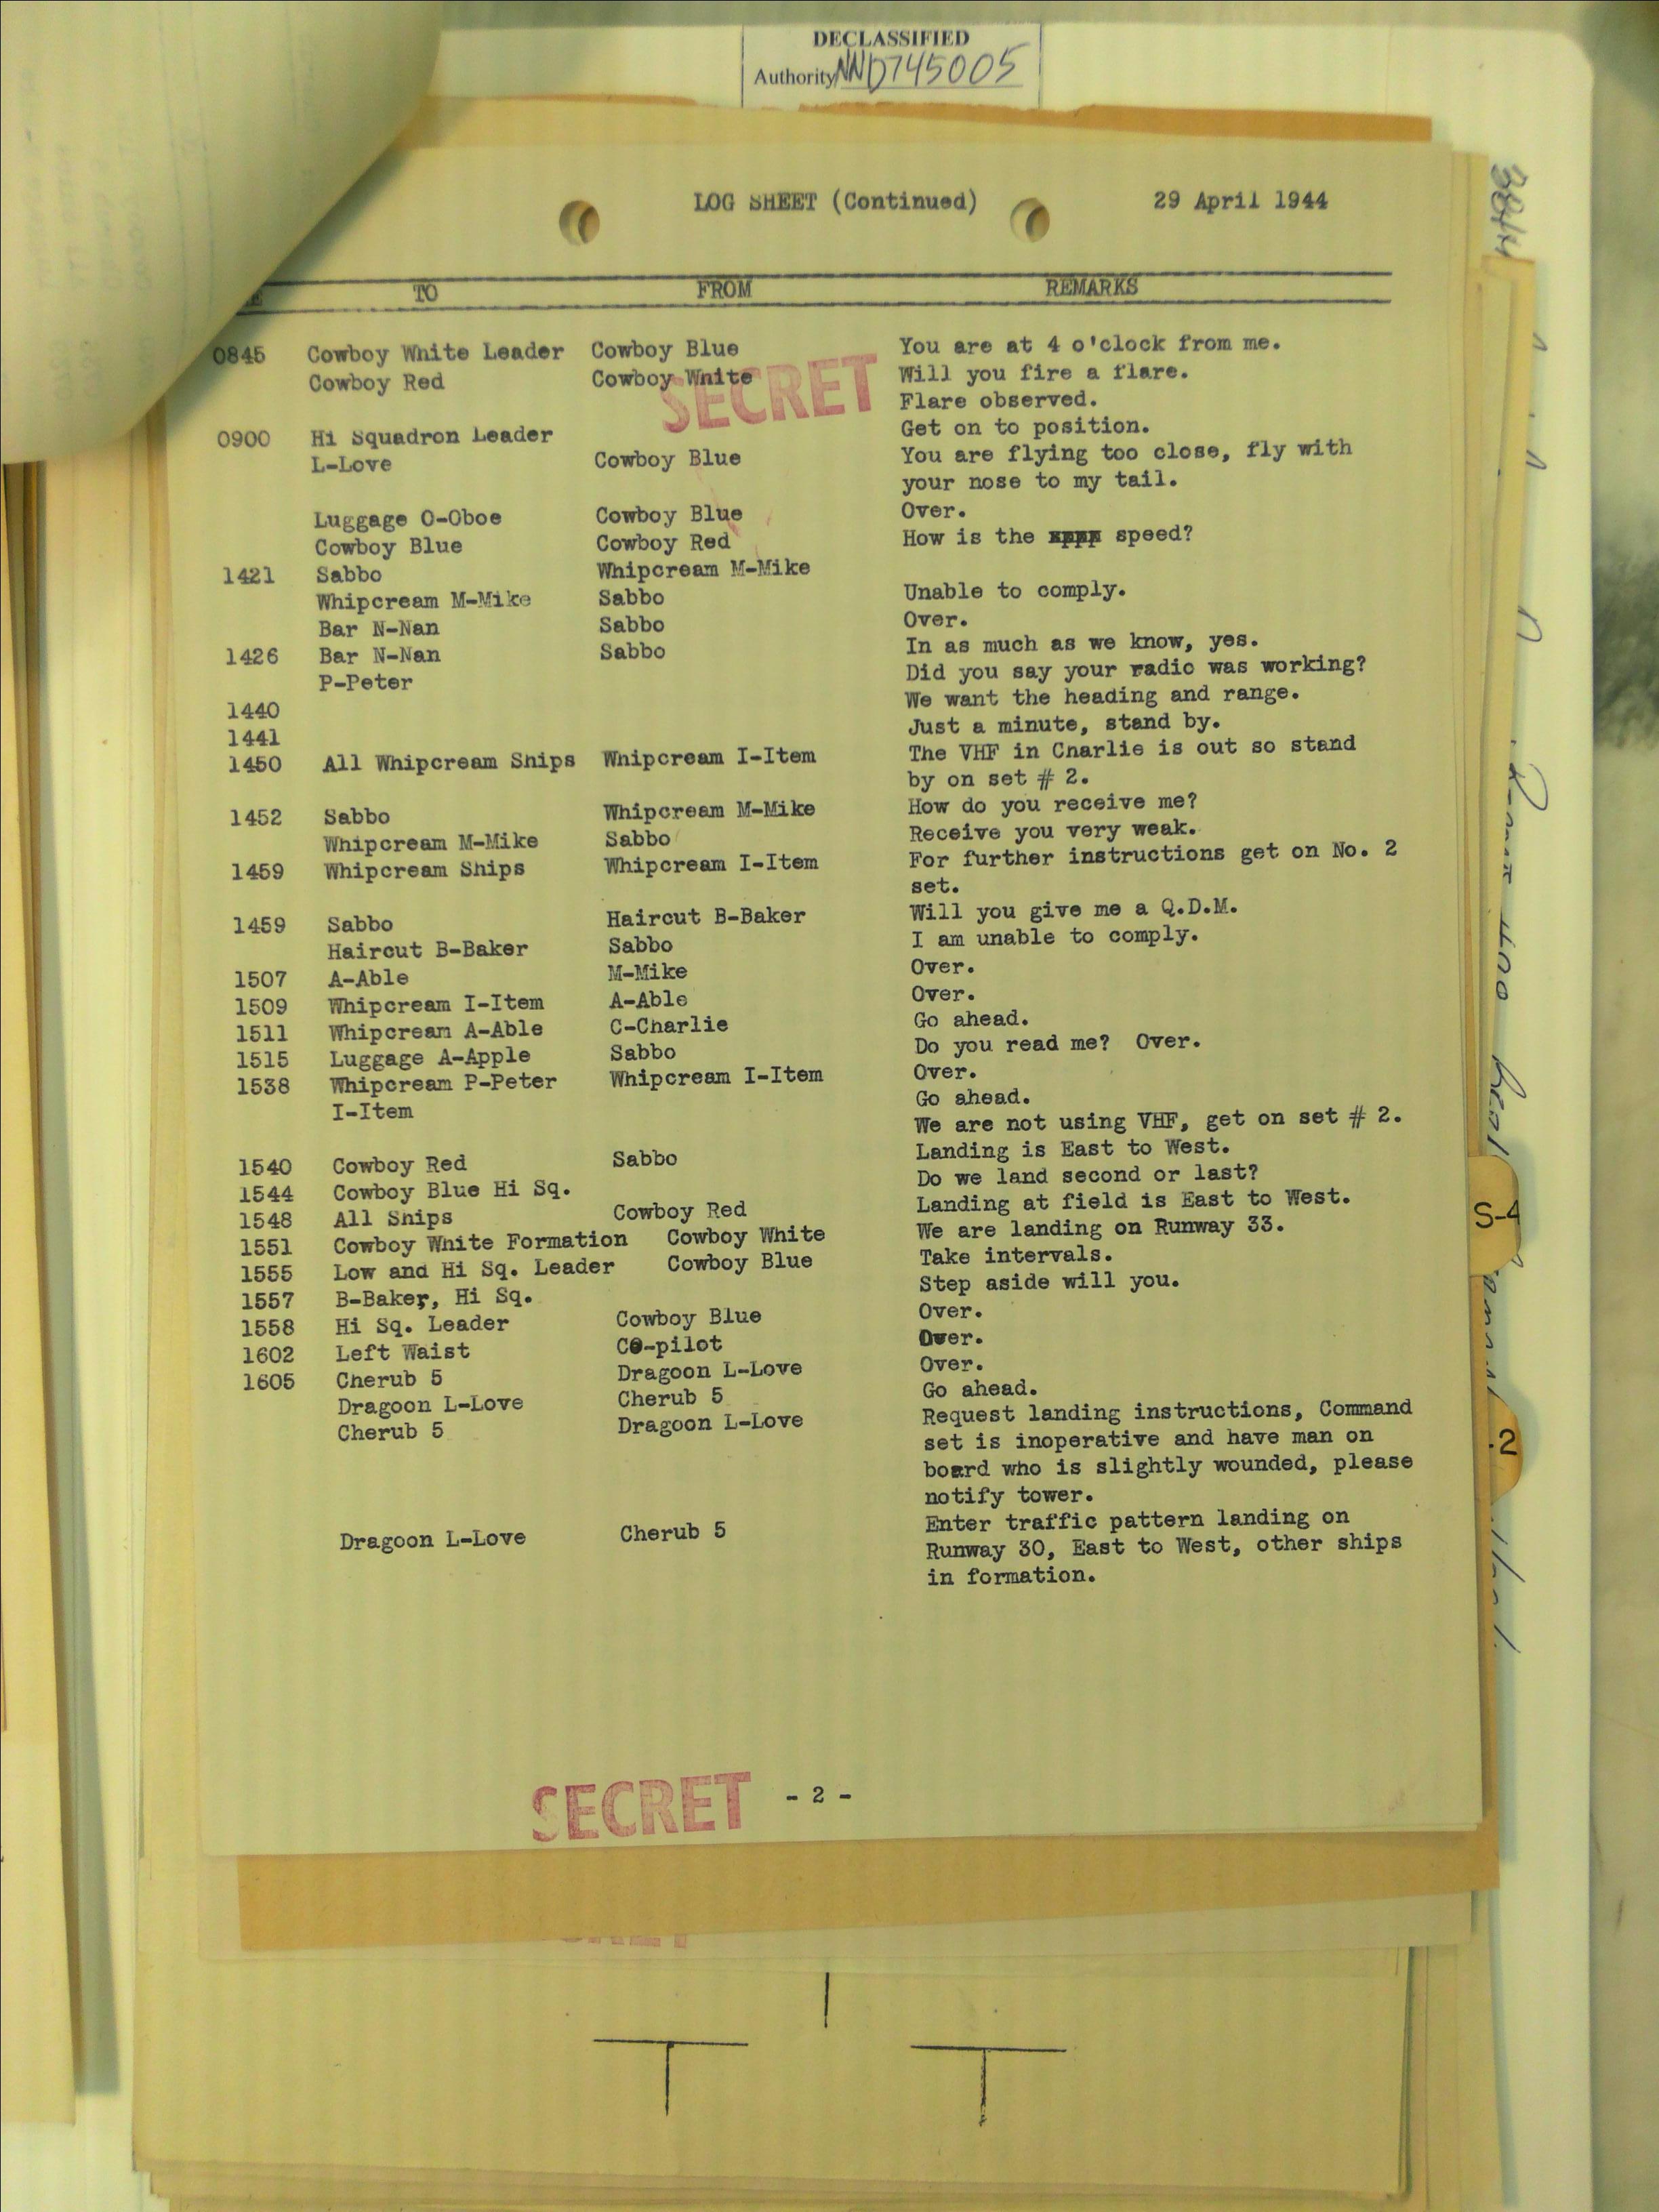 DECLASSIFIED
Authority NND745005
LOG SHEET (Continued) 29 April 1944
TO FROM REMARKS
0845 Cowboy White Leader Cowboy Blue You are at 4 o'clock from me.
Cowboy Red Cowboy White Will you fire a flare.
Flare observed.
SECRET
0900 Hi Squadron Leader Get on to position.
L-Love Cowboy Blue You are flying too close, fly with
your nose to my tail.
Luggage O-Oboe Cowboy Blue Over.
Cowboy Blue Cowboy Red How is the speed?
1421 Sabbo Whipcream M-Mike
Whipcream M-Mike Sabbo Unable to comply.
Bar N-Nan Sabbo Over.
1426 Bar N-Nan Sabbo In as much as we know, yes.
P-Peter Did you say your radio was working?
1440 We want the heading and range.
1441 Just a minute, stand by.
1450 All Whipcream Ships Whipcream I-Item The VHF in Charlie is out so stand
by on set # 2.
1452 Sabbo Whipcream M-Mike How do you receive me?
Whipcream M-Mike Sabbo Receive you very weak.
1459 Whipcream Ships Whipcream I-Item For further instructions get on No. 2
set.
1459 Sabbo Haircut B-Baker Will you give me a Q.D.M.
Haircut B-Baker Sabbo I am unable to comply.
1507 A-Able M-Mike Over.
1509 Whipcream I-Item A-Able Over.
1511 Whipcream A-Able C-Charlie Go ahead.
1515 Luggage A-Apple Sabbo Do you read me? Over.
1538 Whipcream P-Peter Whipcream I-Item Over.
I-Item Go ahead.
We are not using VHF, get on set # 2.
1540 Cowboy Red Sabbo Landing is East to West.
1544 Cowboy Blue Hi Sq. Do we land second or last?
1548 All Ships Cowboy Red Landing at field is East to West.
1551 Cowboy White Formation Cowboy White We are landing on Runway 33.
1555 Low and Hi Sq. Leader Cowboy Blue Take intervals.
1557 B-Baker, Hi Sq. Step aside will you.
1558 Hi Sq. Leader Cowboy Blue Over.
1602 Left Waist CO-pilot Over.
1605 Cherub 5 Dragoon L-Love Over.
Dragoon L-Love Cherub 5 Go ahead.
Cherub 5 Dragoon L-Love Request landing instructions, Command
set is inoperative and have man on
board who is slightly wounded, please
notify tower.
Dragoon L-Love Cherub 5 Enter traffic pattern landing on
Runway 30, East to West, other ships
in formation.
SECRET - 2 -
S-4
-2